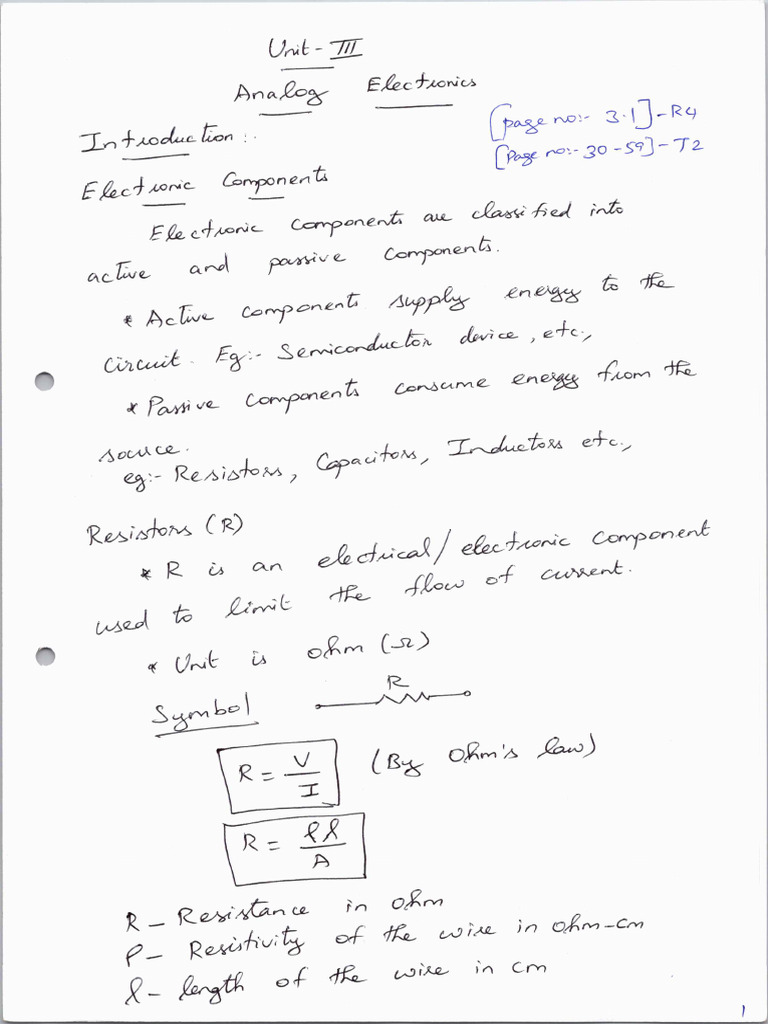 Unit - III
Analog Electronics
[page no:- 3.1] - R4
[Page no:- 30 - 59] - T2
Introduction :-
Electronic Components
Electronic components are classified into
active and passive components.
* Active components supply energy to the
circuit. Eg:- Semiconductor device, etc.,
* Passive components consume energy from the
source.
eg:- Resistors, Capacitors, Inductors etc.,
Resistors (R)
* R is an electrical/electronic component
used to limit the flow of current.
* Unit is ohm (Ω)
Symbol
R
R = V/I (By Ohm's law)
R = ρl/A
R - Resistance in ohm
ρ - Resistivity of the wire in ohm-cm
l - length of the wire in cm
1